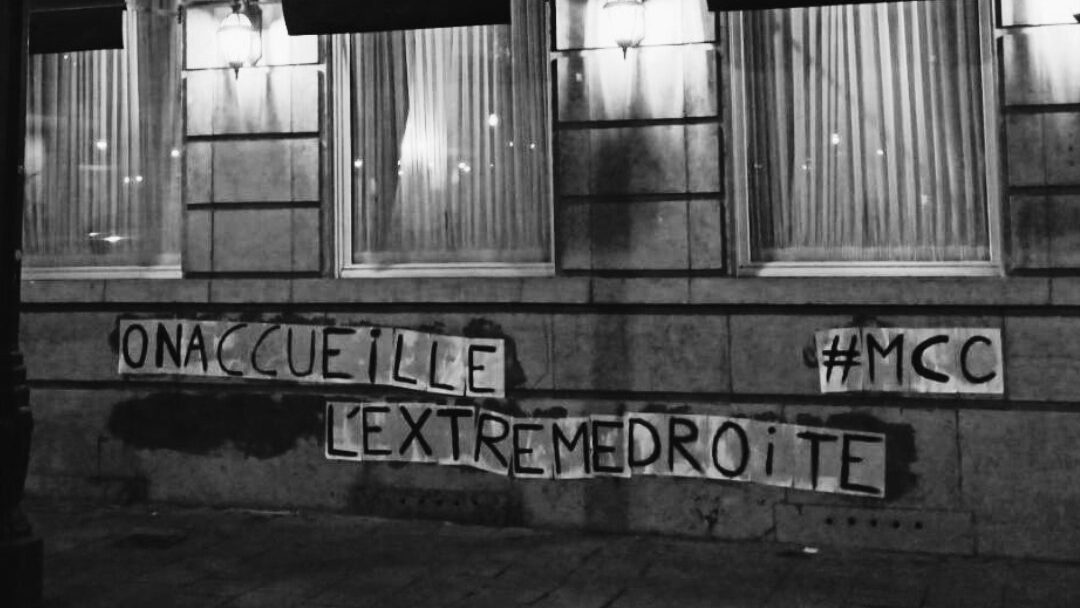 ONACCUEiLLE
#MCC
L'EXTREMEDROiTE